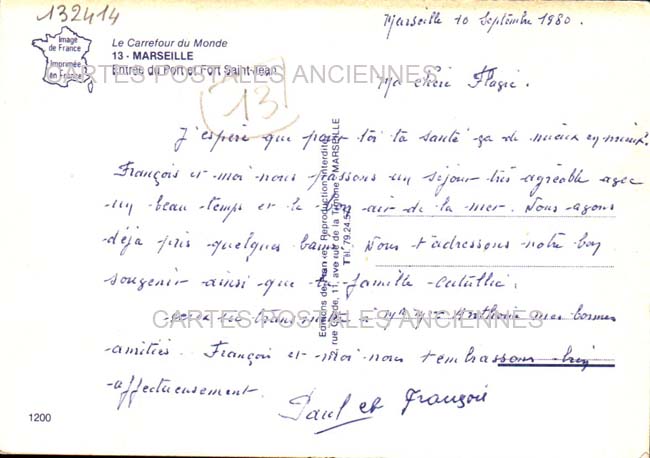 132414
Marseille 10 Septembre 1980.
Image de France
Imprimée en France
Le Carrefour du Monde
13 - MARSEILLE
Entrée du Port et Fort Saint-Jean
CARTES POSTALES ANCIENNES
13
Ma chère
J'espère que pour toi ta santé ça de mieux en mieux.
François et moi nous passons un séjour très agréable avec
un beau temps et le bon air de la mer. Nous avons
déjà pris quelques bains. Nous t'adressons notre bon
souvenir ainsi que ta famille
mes bonnes
CARTES POSTALES ANCIENNES
amitiés. François et moi nous t'embrassons bien
affectueusement.
Paul et François
1200
Editions de France - Reproduction interdite
MARSEILLE
Tél. 79.24.